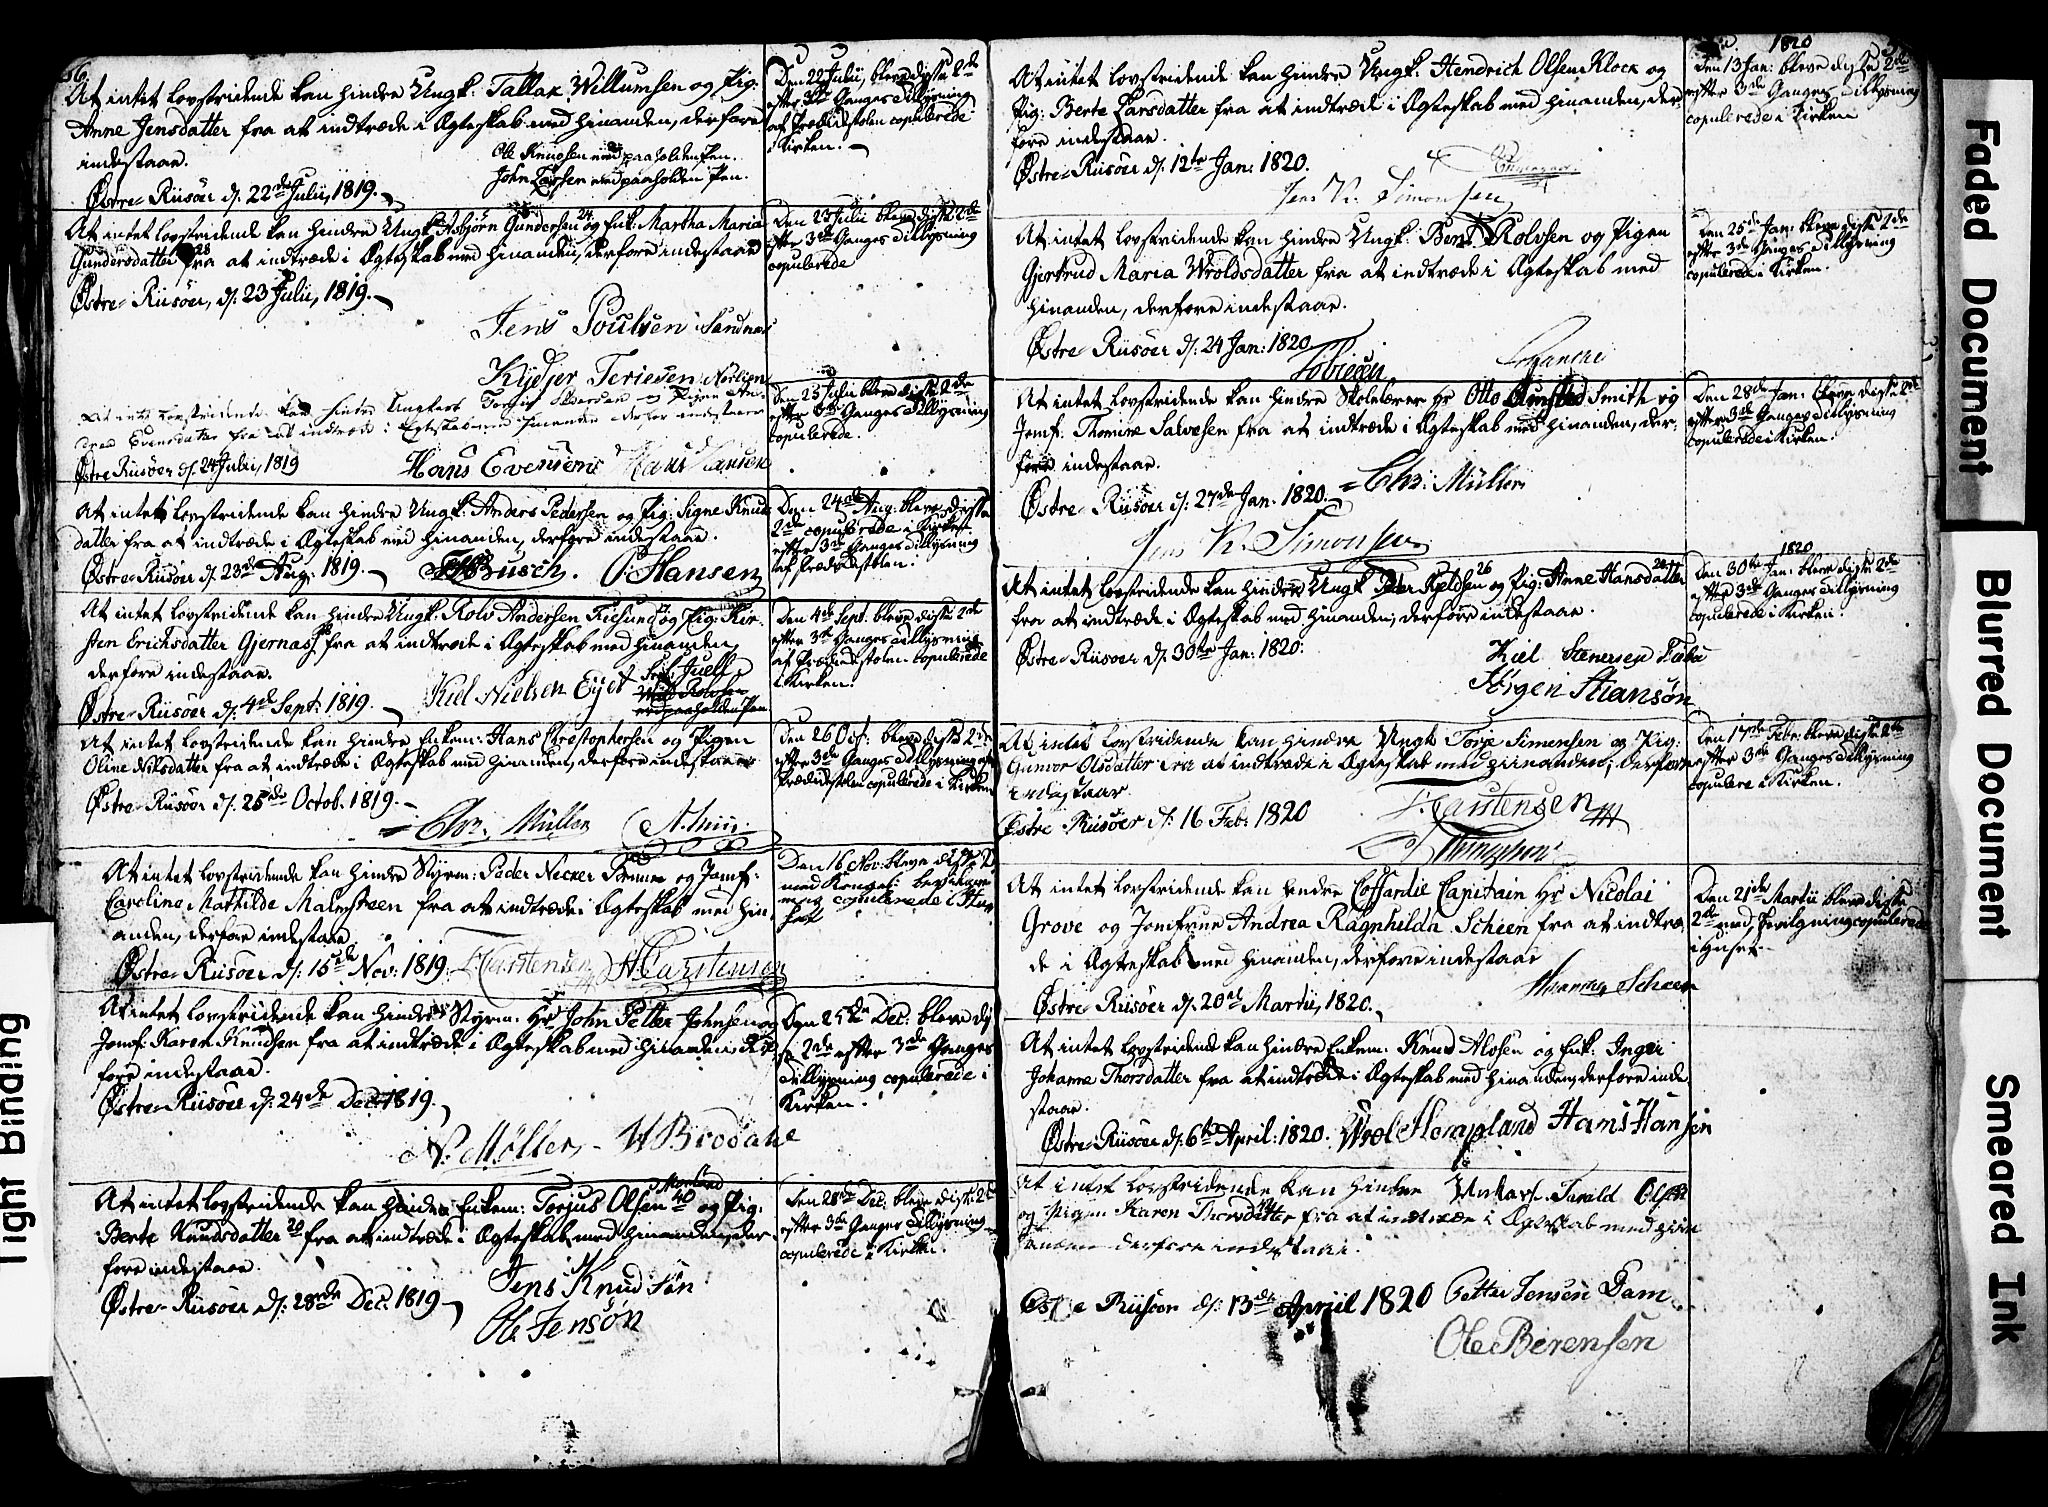 56.
At intet lovstridende kan hindre Ungk: Tallak Willumsen og Pig:
Anne Jensdatter fra at indtræde i Ægteskab med hinanden, derfore
indestaae.
Ole Knudsen med paaholden Pen.
John Larssen med paaholden Pen.
Østre-Riisöer d. 22de Julii, 1819.
Den 22 Julii, bleve disse 2de
efter 3de Ganges Tillysning
af Prædikestolen copulerede
i Kirken.
At intet lovstridende kan hindre Ungk. Asbjörn Gundersen 24 og Enk. Martha Maria
Gundersdatter 28 fra at indtræde i Ægteskab med hinanden, derfore indestaae
Østre-Riisöer, d. 23 Julii, 1819.
Jens Poulsen Sandnæs
Kydjer Teriesen
Den 23 Julii bleve disse 2de
efter 3de Ganges Tillysning
copulerede
At intet lovstridende kan hindre Ungkarl og Pigen
Evensdatter fra at indtræde i Ægteskab med hinanden derfor indestaaer
Østre Riisöer d. 24 Julii, 1819
Hans Evensen Hans Hansen
Den 25 Julii bleve disse 2de
efter 3de Ganges Tillysning
copulerede.
At intet lovstridende kan hindre Ungk: Anders Pedersen og Pig: Signe Knuds
datter fra at indtræde i Ægteskab med hinanden, derfore indestaae.
Østre-Riisöer d. 23de Aug: 1819.
Busch. P: Hansen
Den 24de Aug: bleve disse
2de copulerede i Kirken
efter 3de Ganges Tillysning
af Prædikestolen.
At intet lovstridende kan hindre Ungk: Rolv Andersen og Pig: Kir
sten Erichsdatter Gjernæs, fra at indtræde i Ægteskab med hinanden,
derfore indestaae.
Østre-Riisöer d. 4de Sept: 1819.
Kiel Nielsen
Juell
Rolvsen
med paaholden Pen
Den 4de Sept. bleve disse 2de
efter 3de Ganges Tillysning
af Prædikestolen copulerede
i Kirken.
At intet lovstridende kan hindre Enkem: Hans Christophersen og Pigen
Oline Nilsdatter fra at indtræde i Ægteskab med hinanden, derfore indestaae
Østre-Riisöer d. 25de Octob. 1819.
Chr: Müller
Den 26 Oct: bleve disse 2de
efter 3de Ganges Tillysning af
Prædikestolen copulerede i Kirken
At intet lovstridende kan hindre Styrm: Peder Necker og Jomf:
Caroline Mathilde Malmsteen fra at indtræde i Ægteskab med hin
anden, derfore indestaae
Østre-Riisöer d. 15de Nov: 1819.
Carstensen Carstensen
Den 16 Nov: bleve disse 2
med Kongel: bevil
copulerede i Huu
set
At intet lovstridende kan hindre Styrm: Hr John Petter Johnsen og
Jomf: Karen Knudsen fra at indtræde i Ægteskab med hinanden, der
fore indestaae.
Østre-Riisöer d. 24de Dec: 1819.
N: Møller W Brodahe
Den 25de Dec: bleve di
se 2de efter 3de Ganges
Tillysning copulerede i
Kirken.
At intet lovstridende kan hindre Enkem: Torjus Olsen 40 og Pig:
Berte Knudsdatter 20 fra at indtræde i Ægteskab med hinanden, der
fore indestaae.
Østre-Riisöer d. 28de Dec: 1819
Jens Knudsøn
Ole Jensøn
Den 28de Dec: bleve disse 2de
efter 3de Ganges Tillysning
copulerede i Kirken.
At intet lovstridende kan hindre Ungk: Hendrich Olsen Klock og
Pig: Berte Larsdatter fra at indtræde i Ægteskab med hinanden, der
fore indestaae.
Østre-Riisöer d. 12te Jan: 1820.
Jens K. Simonsen
1820
Den 13 Jan: bleve disse 2de
efter 3de Ganges Tillysning
copulerede i Kirken
At intet lovstridende kan hindre Ungk: Bent Rolvsen og Pigen
Gjertrud Maria Wroldsdatter fra at indtræde i Ægteskab med
hinanden, derfore indestaae.
Østre-Riisöer d. 24 Jan: 1820
Tobiesen
Den 25de Jan: bleve disse 2de
efter 3de Ganges Tillysning
copulerede i Kirken.
At intet lovstridende kan hindre Skolelærer Hr Otto Smith og
Jomf. Thomine Salvesen fra at indtræde i Ægteskab med hinanden, der-
fore indestaae.
Østre-Riisöer d. 27de Jan: 1820.
Chr: Müller
Jens K. Simonsen
Den 28de Jan: bleve disse 2de
efter 3de Ganges Tillysning
copulerede i Kirken.
At intet lovstridende kan hindre Ungk Peter Kjeldsen 26 og Pig: Anne Hansdatter
fra at indtræde i Ægteskab med hinanden, derfore indestaae.
Østre-Riisöer d. 30te Jan: 1820.
Kiel
Jörgen
1820
Den 30te Jan: bleve disse 2de
efter 3de Ganges Tillysning
copulerede i Kirken.
At intet lovstridende kan hindre Ungk Torje Simensen og Pig:
Gunvor Olsdatter fra at indtræde i Ægteskab med hinanden, derfore
indestaar
Østre-Riisöer d. 16 Feb: 1820
Carstensen
Den 17de Feb: bleve disse 2de
efter 3de Ganges Tillysning
copulere i Kirken.
At intet lovstridende kan hindre Coffardie Capitain Hr Nicolai
Grove og Jomfrue Andrea Ragnhilda Scheen fra at indtræ
de i Ægteskab med hinanden, derfore indestaae
Scheen
Østre-Riisöer d. 20de Martii, 1820.
Den 21de Martii bleve disse
2de med Bevilgning copulerede
i Huset.
At intet lovstridende kan hindre Enkem: Knud Alvsen og Enk: Inger
Johanne Thorsdatter fra at indtræde i Ægteskab med hinanden, derfore inde
staae.
Østre-Riisöer d. 6te April: 1820. Hans Hansen
At intet lovstridende kan hindre Unkarl Tarald Olsen
og Pigen Karen Thorsdatter fra at indtræde i Ægteskab med hin
anden derfore indestaae.
Østre Riisöer d. 13de Apriil 1820
Petter Jensen Dam
Ole Berensen
Tight Binding
Faded Document
Blurred Document
Smeared Ink